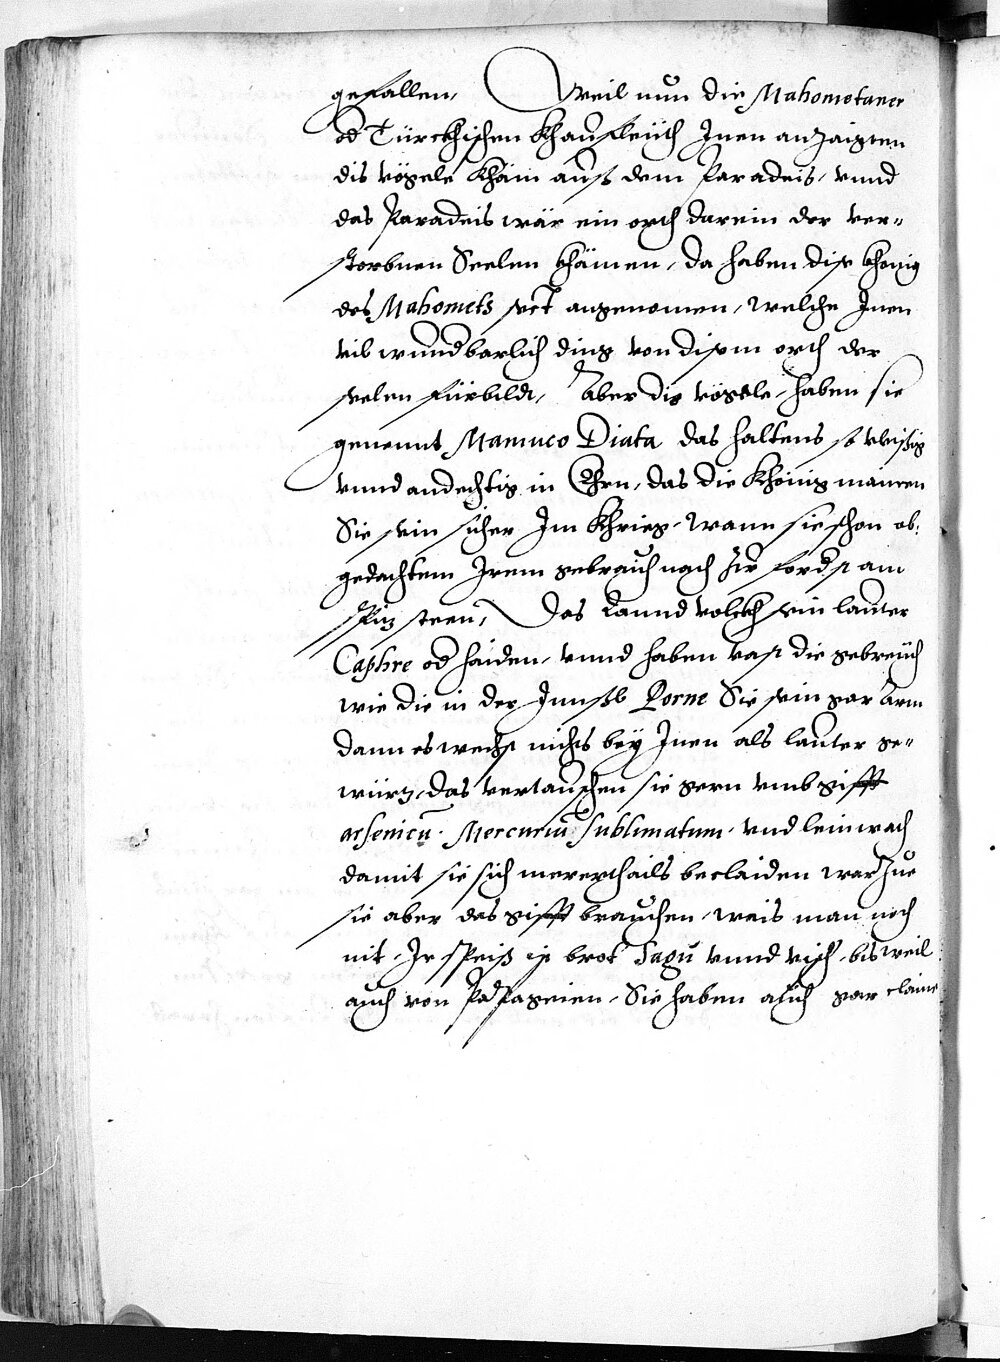 gefallen, Weil nun die Mahometaner
od Türckhischen Khauffleüth Inen anzaigten
dis vögele khäm auß dem Paradeis, vnnd
das Paradeis wär ein orth darein der ver-
storbnen Seelen khämen, da haben dise khönig
des Mahomets sect angenomen, welche Inen
vil wunndbarlich ding von disem orth der
seelen fürbildt, Aber die vögele haben sie
genennt Mamuco Diata das haltens so vleissig
vnnd andechtig in Ehrn, das die Khönig mainen
Sie sein sicher Im Khrieg, wann sie schon ob-
gedachtem Irem gebrauch nach zu fordst am
spitz steen, Das Lanndvolckh sein lauter
Caphre od haiden, vnnd haben vast die gebreüch
wie die in der Innsel Porne Sie sein gar Arm
dann es wechst nichts bey Inen als lauter ge-
würtz, das vertauschen sie gern vmb gifft
arsenicū. Mercuriū sublimatum. vnd leinwath
damit sie sich merertheils beclaiden war zue
sie aber des gifft brauchen, weis man noch
nit, Ir speiß ist brot Sagu vnnd visch, bisweil
auch von Papageien, Sie haben auch gar claine